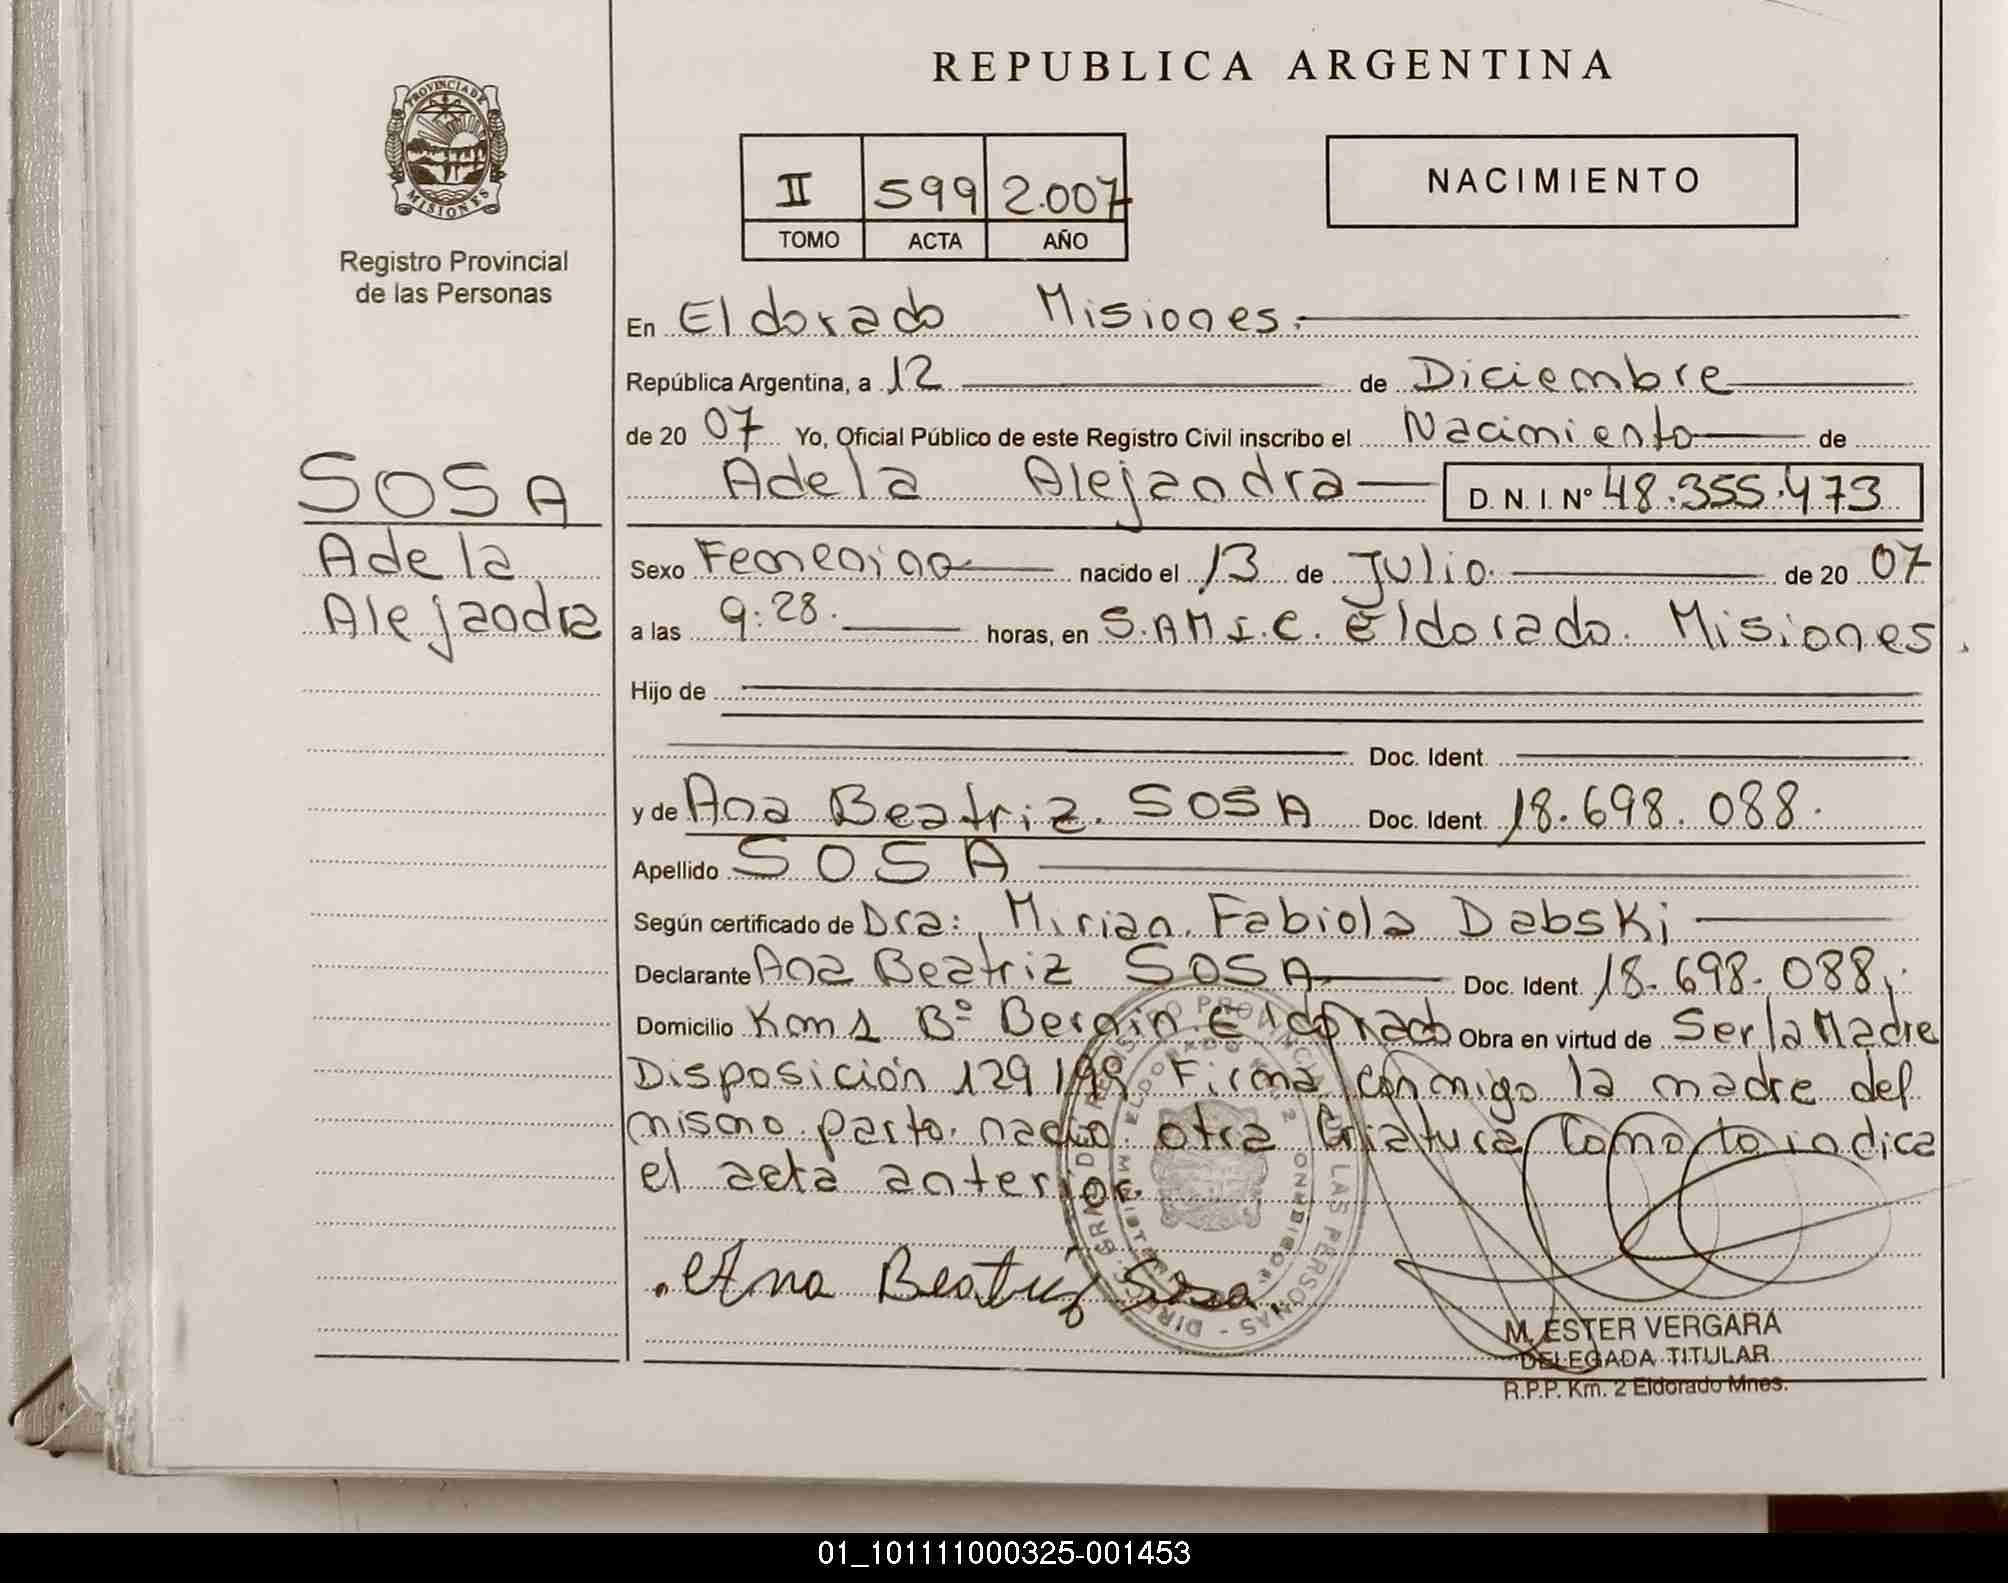 REPUBLICA ARGENTINA
PROVINCIA DE
MISIONES
Registro Provincial
de las Personas
II 599 2.007
TOMO ACTA AÑO
NACIMIENTO
En Eldorado Misiones.
República Argentina, a 12 de Diciembre
de 20 07 Yo, Oficial Público de este Registro Civil inscribo el Nacimiento de
Adela Alejandra D. N. I. Nº 48.355.473
SOSA
Adela
Alejandra
Sexo Femenino nacido el 13 de Julio. de 20 07
a las 9:28. horas, en S.AM.I.C. Eldorado. Misiones.
Hijo de
Doc. Ident.
y de Ana Beatriz. SOSA Doc. Ident. 18.698.088.
Apellido SOSA
Según certificado de Dra: Mirian. Fabiola Dabski
Declarante Ana Beatriz SOSA Doc. Ident. 18.698.088.
Domicilio Km 1 Bº Bernin. Eldorado Obra en virtud de Ser la Madre
Disposición 129/99 Firma conmigo la madre del
mismo parto. nacio. otra Criatura Como to indica
el acta anterior.
Ana Beatriz Sosa.
M. ESTER VERGARA
DELEGADA TITULAR
R.P.P. Km. 2 Eldorado Mnes.
01_101111000325-001453